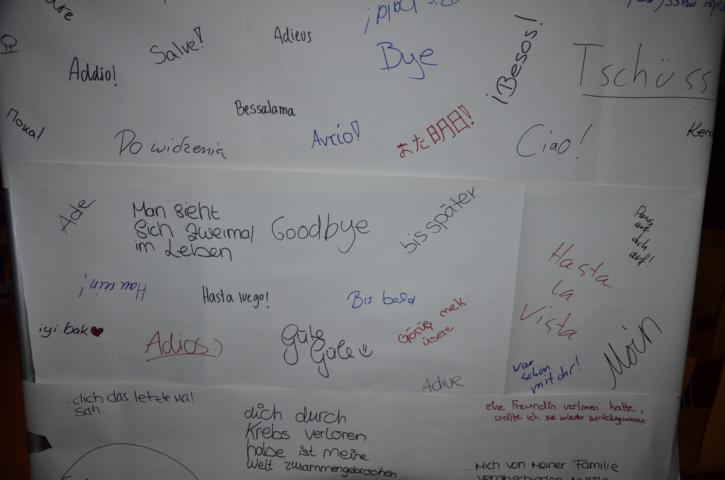 Salve!
Adieus
Bye
¡Besos!
Tschüss
Addio!
Bessalama
Пока!
Do widzenia
Avrio!
また明日!
Ciao!
Ade
Man sieht
sich zweimal
im Leben
Goodbye
bis später
Pass
auf
dich
auf!
Hau rein!
Hasta luego!
Bis bald
Hasta
La
Vista
iyi bak
Adios:)
Güle
Güle
Görüş mek
üzere
Moin
war
schön
mit dir!
Adive
...dich das letzte Mal
sah.
dich durch
Krebs verloren
habe ist meine
Welt zusammengebrochen
eine Freundin verloren hatte,
wollte ich sie wieder zurückgewinnen
...mich von meiner Familie
verabschieden musste